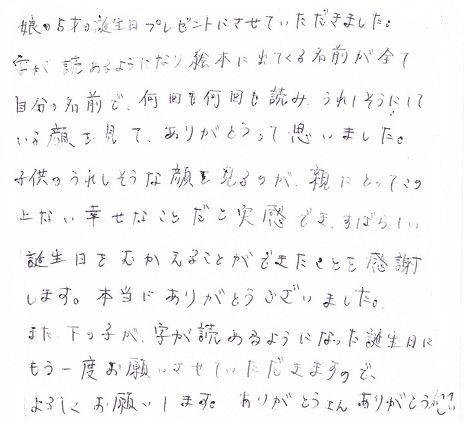 娘の5才の誕生日プレゼントにさせていただきました。
字が読めるようになり絵本に出てくる名前が全て
自分の名前で、何回も何回も読み、うれしそうにして
いる顔を見て、ありがとうって思いました。
子供のうれしそうな顔を見るのが、親にとってこの
上ない幸せなことだと実感でき、すばらしい
誕生日をむかえることができたことを感謝
します。本当にありがとうございました。
また、下の子が、字が読めるようになった誕生日に
もう一度お願いさせていただきますので、
よろしくお願いします。ありがとう ありがとう